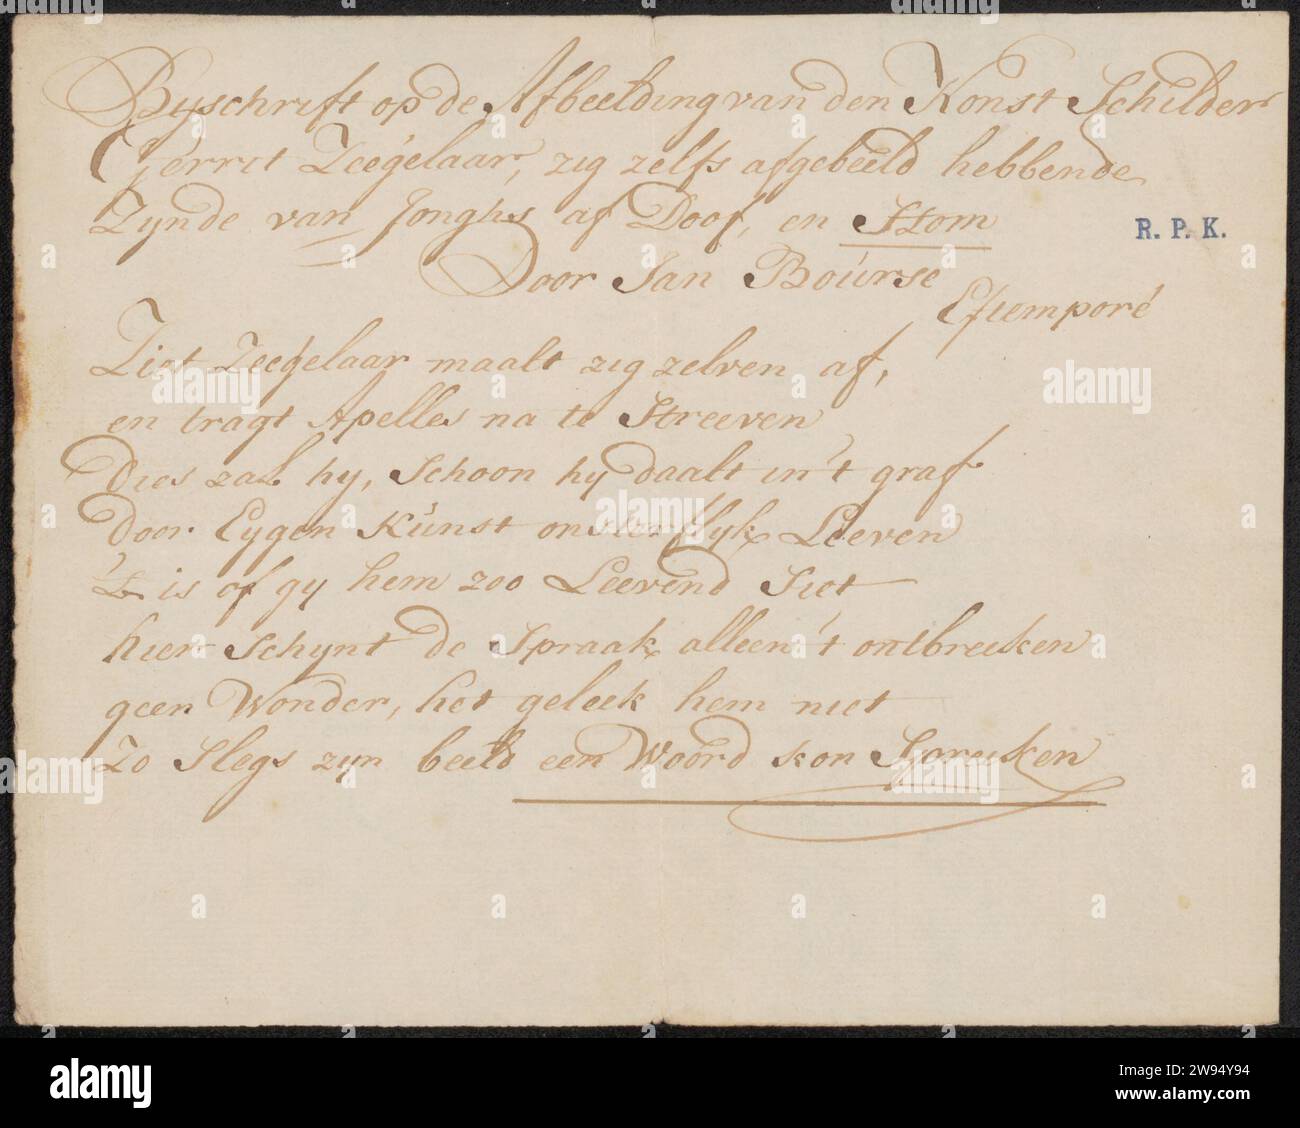 Byschrift op de Afbeelding van den Konst Schilder
Gerrit Zeegelaar, zig zelfs afgebeeld hebbende
Zynde van Jonghs af Doof, en Stom
R. P. K.
Door Jan Bourse
Extemporé
Ziet Zeegelaar maalt zig zelven af,
en tragt Apelles na te Streeven
Dies zal hy, Schoon hy daalt in 't graf
door Eygen Kunst onsterflyk Leeven
't is of gy hem zoo Leevend Siet
hier Schynt de Spraak alleen 't ontbreeken
geen Wonder, het geleek hem niet
Zo Slegs zyn beeld een Woord kon Spreeken
alamy
Image ID: 2W94Y94
www.alamy.com